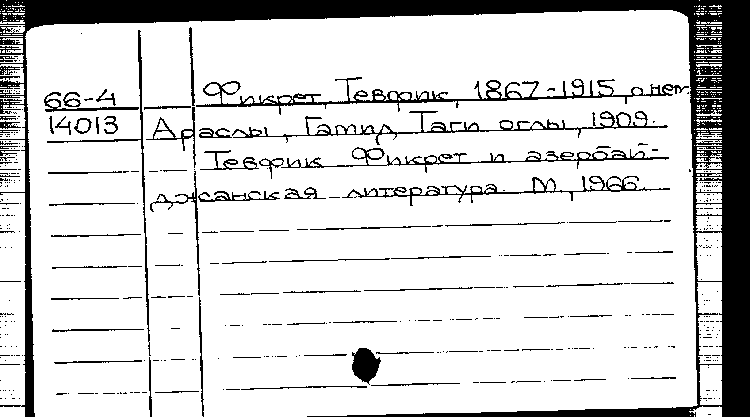 66-4 Фикрет, Тевфик, 1867-1915, о нем
14013 Араслы, Гамид Таги оглы, 1909.
Тевфик Фикрет и азербай-
джанская литература. М., 1966.